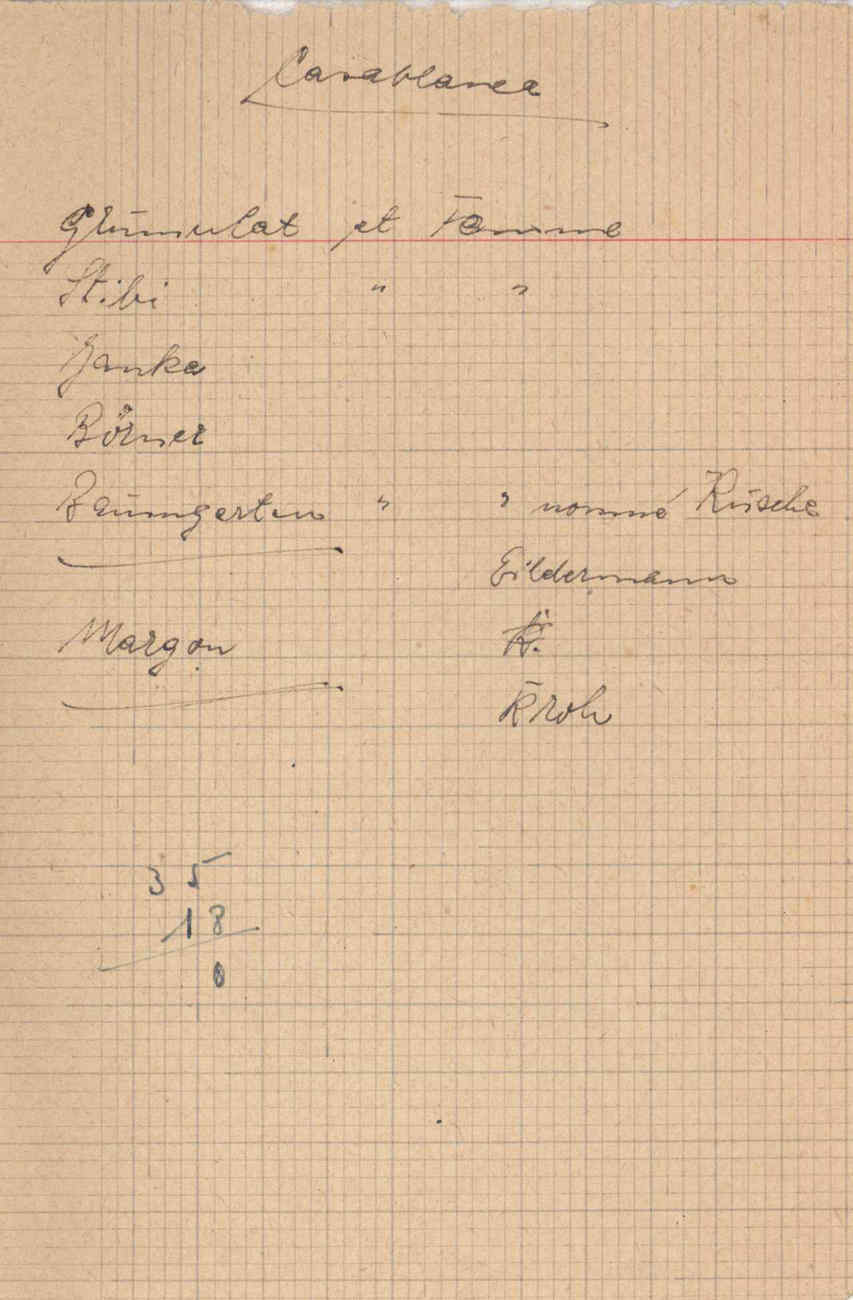 Casablanca
Grünwlat et Femme
Stibi " "
Janka
Börner
Baumgarten " " nommé Rusche
Eildermann
Margon K.
Kroh
35
18
0